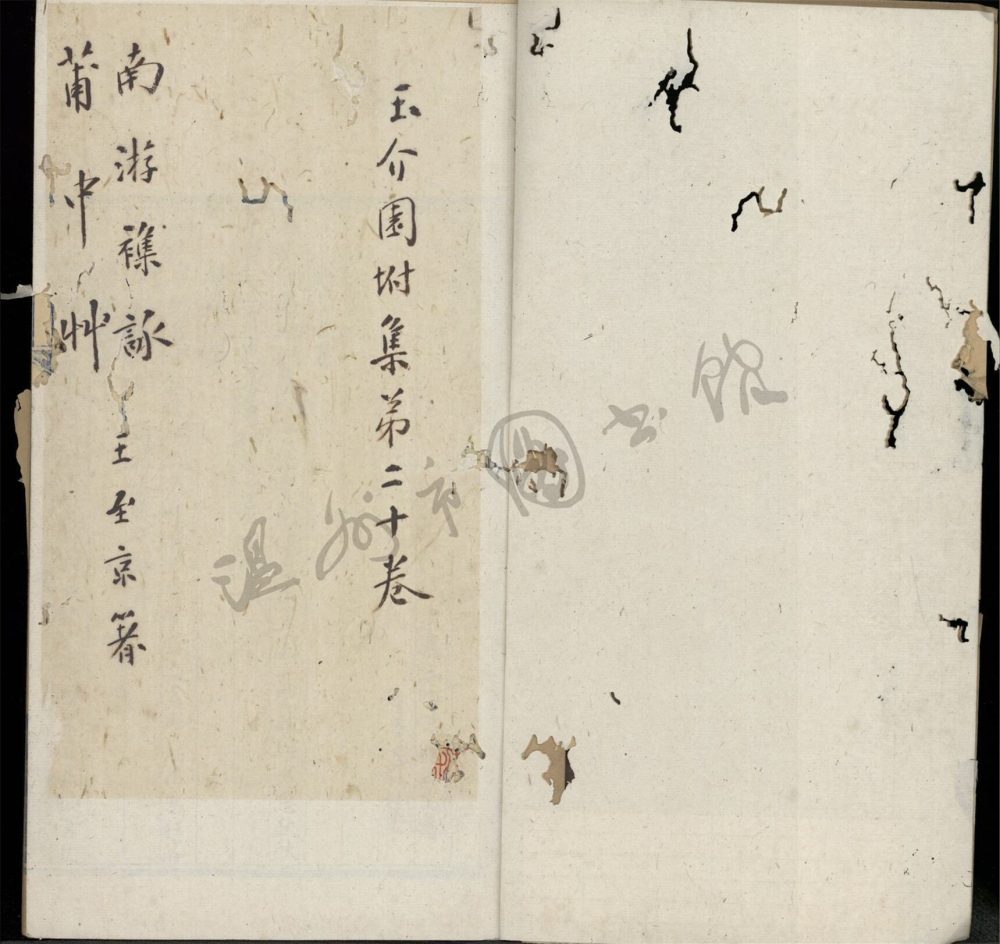 玉介園坿集第二十卷
南游襍詠 王至京箸
莆中艸
温州市圖书馆